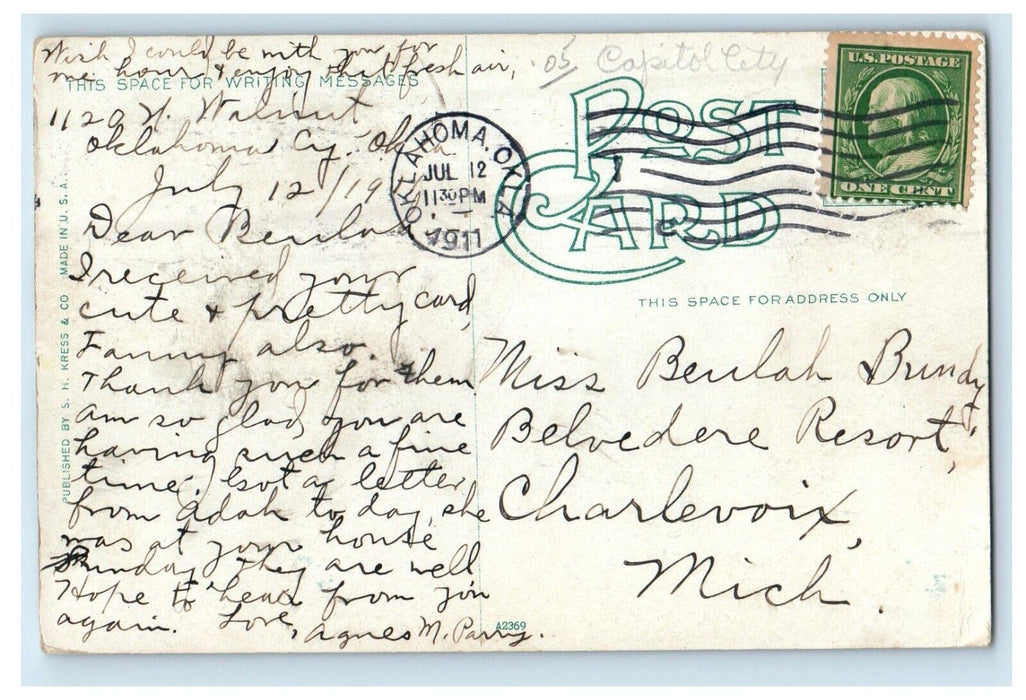 Wish I could be with you for
one hour & enjoy that fresh air,
THIS SPACE FOR WRITING MESSAGES
1120 N. Walnut
Oklahoma Cy. Okla
July 12/19
Dear Beulah
I received your
cute & pretty card,
Fanny also.
Thank you for them
am so glad you are
having such a fine
time. Got a letter
from Adah to day, she
was at your house
Sunday they are well
Hope to hear from you
again. Love,
Agnes M. Parry.
PUBLISHED BY S. H. KRESS & CO MADE IN U. S. A.
A2369
05 Capitol City
POST
CARD
OKLAHOMA, OKLA
JUL 12
11 30 PM
1911
U.S. POSTAGE
ONE CENT
THIS SPACE FOR ADDRESS ONLY
Miss Beulah Brundy
Belvedere Resort,
Charlevoix,
Mich.